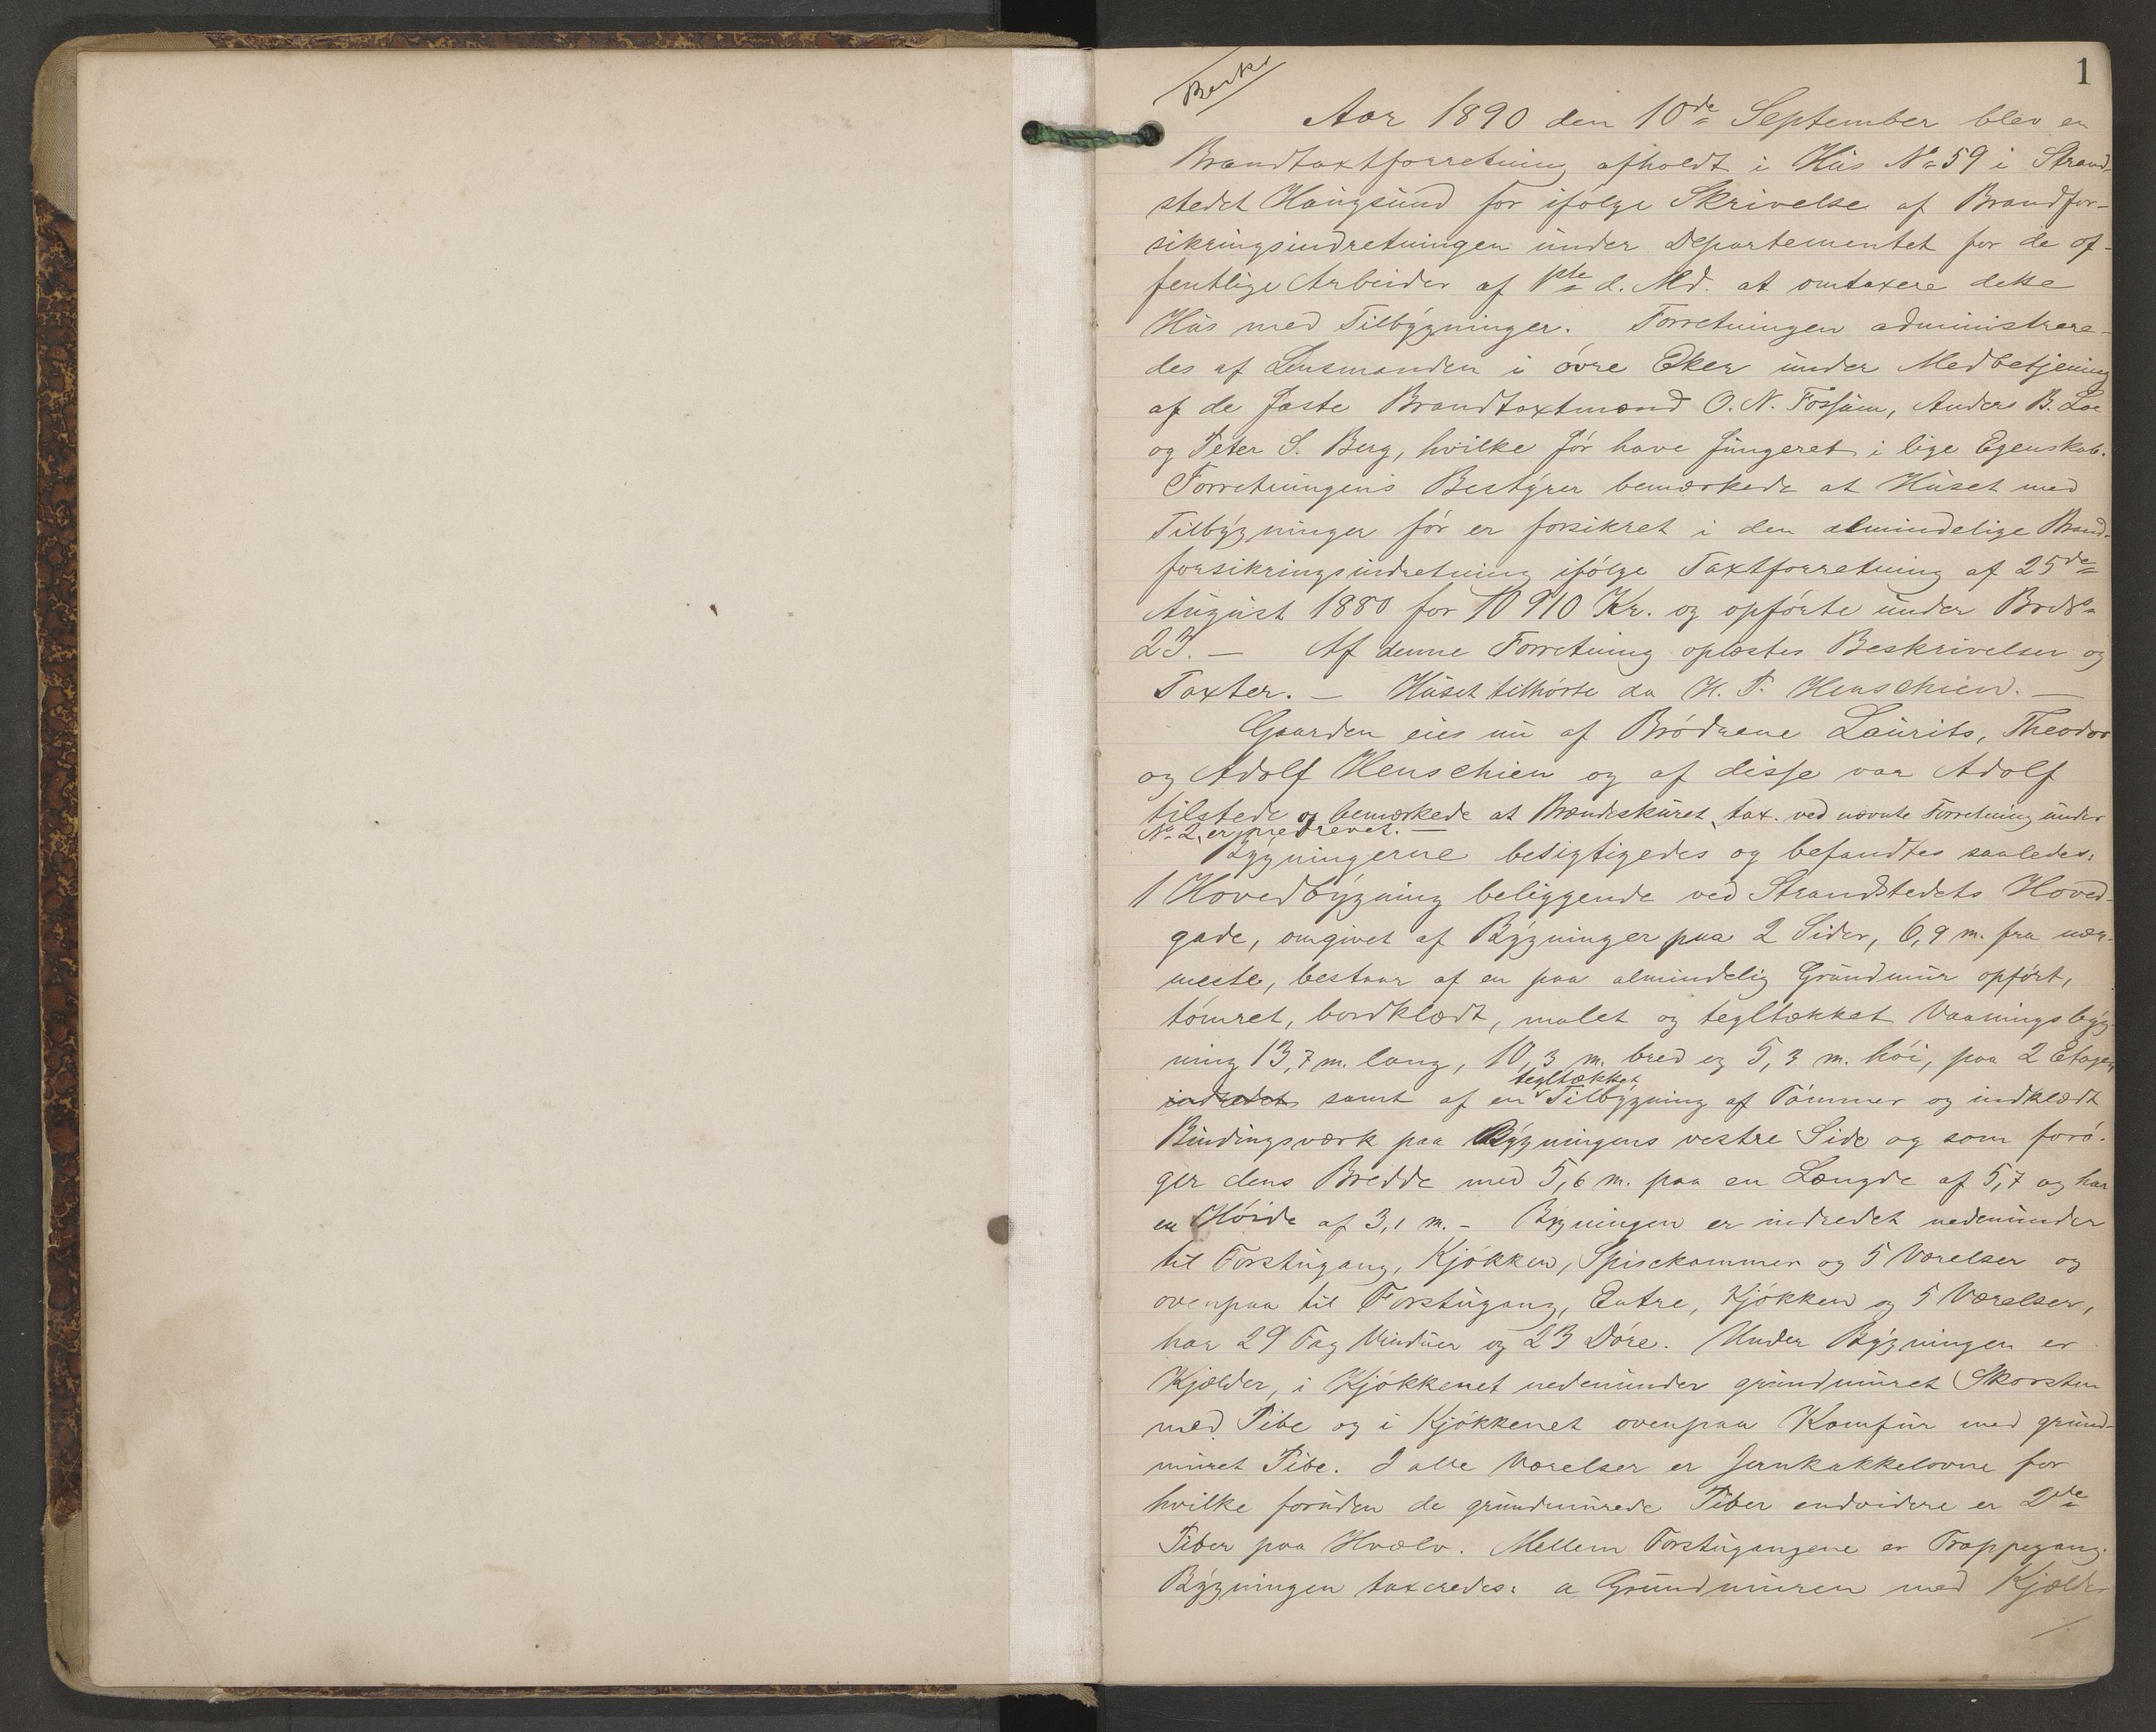 1
Aar 1890 den 10de September blev en
Brandtaxtforretning afholdt i Hus No 59 i Strand-
stedet Haugsund for ifølge Skrivelse af Brandfor-
sikringsindretningen under Departementet for de of-
fentlige Arbeider af 1ste d. Md. at omtaxere dette
Hus med Tilbygninger. Forretningen administrere-
des af Lensmanden i øvre Eker under Medbetjening
af de faste Brandtaxtmænd O. N. Fossum, Anders B. Loe
og Peter S. Berg, hvilke før have fungeret i lige Egenskab.
Forretningens Bestyrer bemærkede at Huset med
Tilbygninger før er forsikret i den almindelige Brand-
forsikringsindretning ifølge Taxtforretning af 25de
August 1880 for 10910 Kr. og opførte under Brdno
23. — Af denne Forretning oplæstes Beskrivelser og
Taxter. — Huset tilhørte da H. P. Henschien. —
Gaarden eies nu af Brødrene Laurits, Theodor
og Adolf Henschien og af disse var Adolf
tilstede og bemærkede at Brændeskuret, tax. ved nævnte Forretning under
No 2, er nedrevet. —
Bygningerne besigtigedes og befandtes saaledes:
1 Hovedbygning beliggende ved Strandstedets Hoved-
gade, omgivet af Bygninger paa 2 Sider, 6,9 m. fra nær-
meste, bestaar af en paa almindelig Grundmur opført,
tømret, bordklædt, malet og tegltækket Vaaningsbyg-
ning 13,7 m. lang, 10,3 m. bred og 5,3 m. høi, paa 2 Etager,
tegltækket
indredet samt af en Tilbygning af Tømmer og indklædt
Bindingsværk paa Bygningens vestre Side og som forø-
ger dens Bredde med 5,6 m. paa en Længde af 5,7 og har
en Høide af 3,1 m. - Bygningen er indredet nedenunder
til Forstugang, Kjøkken, Spisekammer og 5 Værelser og
ovenpaa til Forstugang, Entre, Kjøkken og 5 Værelser,
har 29 Fag Vinduer og 23 Døre. Under Bygningen er
Kjælder, i Kjøkkenet nedenunder grundmuret Skorsten
med Pibe og i Kjøkkenet ovenpaa Komfur med grund-
muret Pibe. I alle Værelser er Jernkakkelovne for
hvilke foruden de grundmurede Piber endvidere er 2de
Piber paa Hvælv. Mellem Forstugangene er Trappegang.
Bygningen taxeredes: a Grundmuren med Kjælder